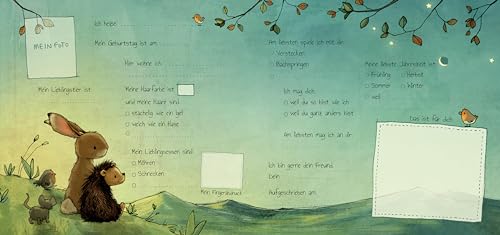 Ich heiße
MEIN FOTO
Mein Geburtstag ist am
Hier wohne ich
Mein Lieblingstier ist
Meine Haarfarbe ist
und meine Haare sind
stachelig wie ein Igel
weich wie ein Hase
Mein Lieblingsessen sind
Möhren
Schnecken
Mein Fingerabdruck
Am liebsten spiele ich mit dir
Verstecken
Bachspringen
Ich mag dich
weil du so bist wie ich
weil du ganz anders bist
Am liebsten mag ich an dir
Ich bin gerne dein Freund
Dein
Aufgeschrieben am
Meine liebste Jahreszeit ist
Frühling
Herbst
Sommer
Winter
weil
Das ist für dich